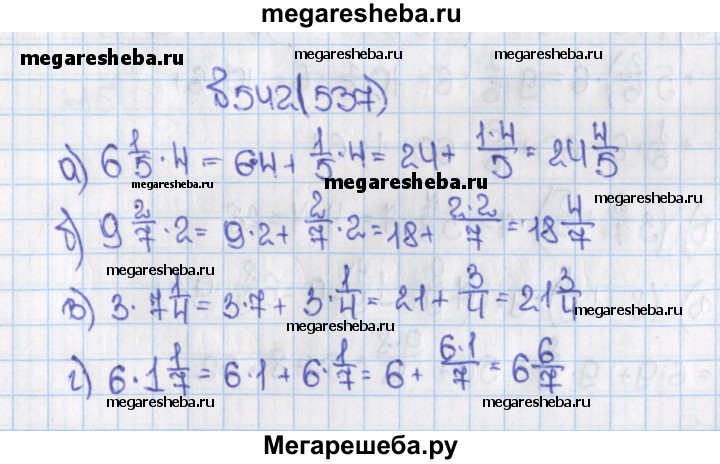 megaresheba.ru
megaresheba.ru megaresheba.ru megaresheba.ru
542(537)
а) 6 1/5 · 4 = 6·4 + 1/5 · 4 = 24 + 1·4/5 = 24 4/5
megaresheba.ru megaresheba.ru megaresheba.ru
б) 9 2/7 · 2 = 9·2 + 2/7 · 2 = 18 + 2·2/7 = 18 4/7
megaresheba.ru megaresheba.ru
в) 3 · 7 1/4 = 3·7 + 3 · 1/4 = 21 + 3/4 = 21 3/4
megaresheba.ru megaresheba.ru
г) 6 · 1 1/7 = 6·1 + 6 · 1/7 = 6 + 6·1/7 = 6 6/7
megaresheba.ru megaresheba.ru
Мегарешеба.ру